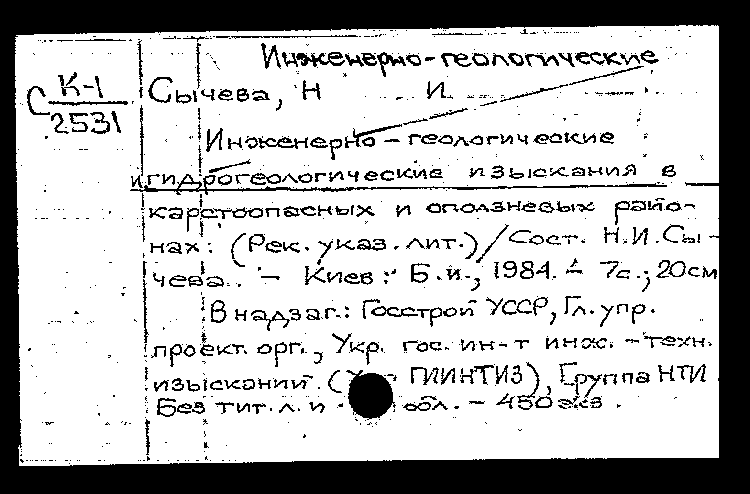 Инженерно-геологические
С К-1
2531
Сычева, Н И
Инженерно-геологические
и гидрогеологические изыскания в
карстоопасных и оползневых райо-
нах: (Рек. указ. лит.)/Сост. Н.И.Сы-
чева. - Киев: Б.и., 1984. - 7с.; 20см
В надзаг.: Госстрой УССР, Гл. упр.
проект. орг., Укр. гос. ин-т инж.-техн.
изысканий. ( ГИИНТИЗ), Группа НТИ
Без тит. л. и обл. - 450 экз.